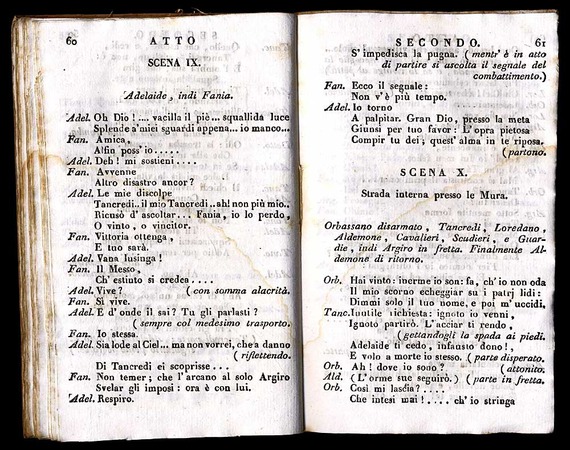 60 ATTO
SCENA IX.
Adelaide, indi Fania.
Adel. Oh Dio!.... vacilla il piè... squallida luce
Splende a'miei sguardi appena... io manco...
Fan. Amica,
Alfin poss'io.....
Adel. Deh! mi sostieni....
Fan. Avvenne
Altro disastro ancor?
Adel. Le mie discolpe
Tancredi.. il mio Tancredi.. ah! non più mio..
Ricusò d'ascoltar... Fania, io lo perdo,
O vinto, o vincitor.
Fan. Vittoria ottenga,
E tuo sarà.
Adel. Vana lusinga!
Fan. Il Messo,
Ch'estinto si credea....
Adel. Vive? (con somma alacrità.
Fan. Si vive.
Adel. E d'onde il sai? Tu gli parlasti?
(sempre col medesimo trasporto.
Fan. Io stessa.
Adel. Sia lode al Ciel... ma non vorrei, che a danno
(riflettendo.
Di Tancredi ei scoprisse...
Fan. Non temer; che l'arcano al solo Argiro
Svelar gli imposi: ora è con lui.
Adel. Respiro.
SECONDO. 61
S'impedisca la pugna. (mentr'è in atto
di partire si ascolta il segnale del
combattimento.)
Fan. Ecco il segnale:
Non v'è più tempo.
Adel. Io torno
A palpitar. Gran Dio, presso la meta
Giunsi per tuo favor: L'opra pietosa
Compir tu dei; quest'alma in te riposa.
(partono.
SCENA X.
Strada interna presso le Mura.
Orbassano disarmato, Tancredi, Loredano,
Aldemone, Cavalieri, Scudieri, e Guar-
die, indi Argiro in fretta. Finalmente Al-
demone di ritorno.
Orb. Hai vinto: inerme io son: fa, ch'io non oda
Il mio scorno echeggiar su i patrj lidi:
Dimmi solo il tuo nome, e poi m'uccidi,
Tanc. Inutile richiesta: ignoto io venni,
Ignoto partirò. L'acciar ti rendo,
(gettandogli la spada ai piedi.
Adelaide ti cedo, infausto dono!,
E volo a morte io stesso. (parte disperato.
Orb. Ah! dove io sono? (attonito.
Ald. (L'orme sue seguirò.) (parte in fretta.
Orb. Così mi lascia?....
Che intesi mai!.... ch'io stringa